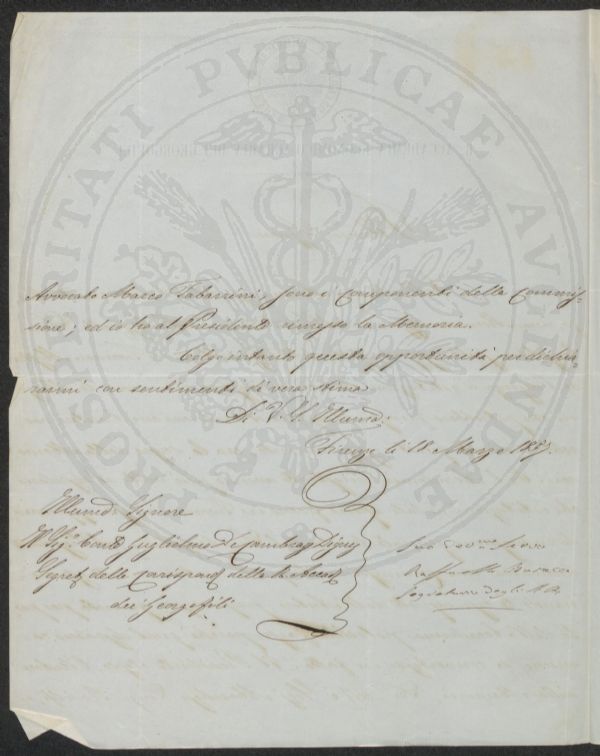 PROSPERITATI PVBLICAE AVGENDAE
Avvocato Marco Tabarrini, sono i componenti della Commis-
sione; ed io ho al Presidente rimesso la Memoria.
Colgo intanto questa opportunità per dichia-
rarmi con sentimenti di vera stima
Di V. S. Illma
Firenze li 18 Marzo
Illmo Signore
Il Sigr Conte Guglielmo de Cambray Digny
Segret. della Corrispond. della R. Accad.
dei Georgofili
Suo Servo
Raffaello
Segretario degli A